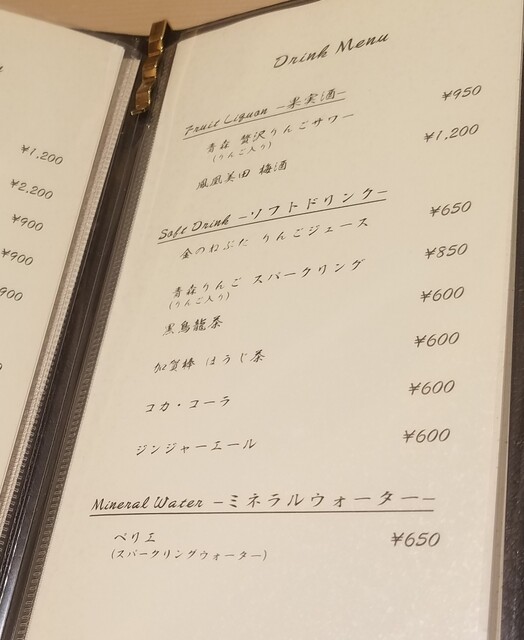 ¥1,200
¥2,200
¥900
¥900
900
Drink Menu
Fruit Liquan -果実酒-
青森 贅沢りんごサワー ¥950
(りんご入り)
鳳凰美田 梅酒 ¥1,200
Soft Drink -ソフトドリンク-
金のねぶた りんごジュース ¥650
青森りんご スパークリング ¥850
(りんご入り)
黒烏龍茶 ¥600
加賀棒 ほうじ茶 ¥600
コカ・コーラ ¥600
ジンジャーエール ¥600
Mineral Water -ミネラルウォーター-
ペリエ ¥650
(スパークリングウォーター)